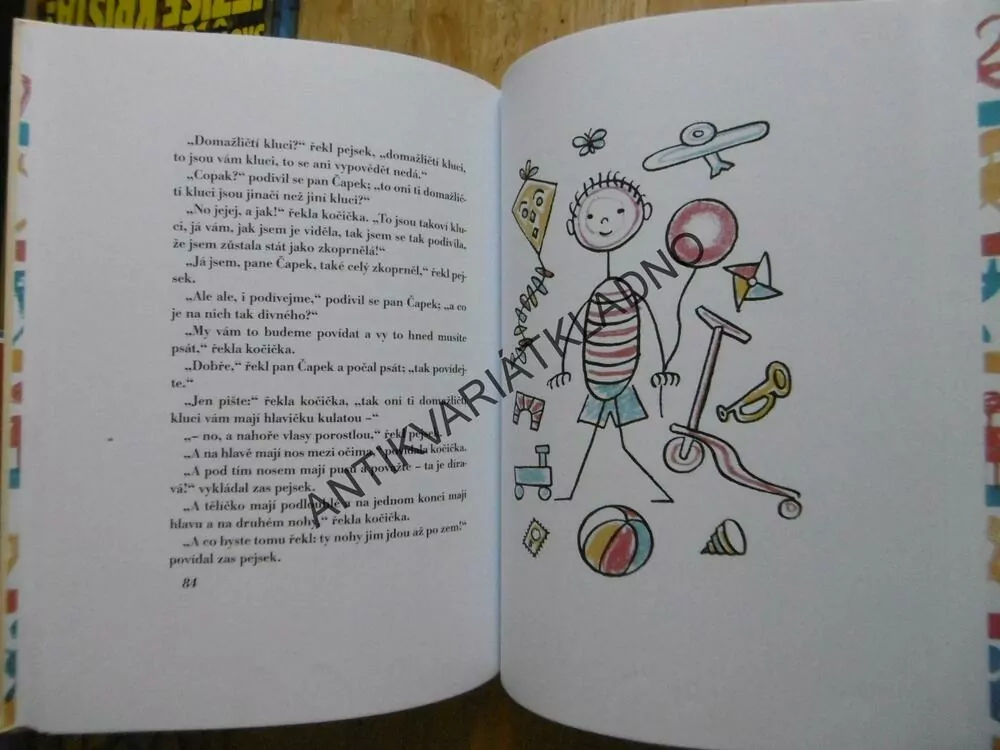 JEŽÍŠE KRISTA?
„Domažličtí kluci?“ řekl pejsek, „domažličtí kluci,
to jsou vám kluci, to se ani vypovědět nedá.“
„Copak?“ podivil se pan Čapek; „to oni ti domažlič-
tí kluci jsou jinačí než jiní kluci?“
„No jejej, a jak!“ řekla kočička. „To jsou takoví klu-
ci, já vám, jak jsem je viděla, tak jsem se tak podivila,
že jsem zůstala stát jako zkoprnělá!“
„Já jsem, pane Čapek, také celý zkoprněl,“ řekl pej-
sek.
„Ale ale, i podívejme,“ podivil se pan Čapek; „a co
je na nich tak divného?“
„My vám to budeme povídat a vy to hned musíte
psát,“ řekla kočička.
„Dobře,“ řekl pan Čapek a počal psát; „tak povídej-
te.“
„Jen pište:“ řekla kočička, „tak oni ti domažličtí
kluci vám mají hlavičku kulatou –“
„– no, a nahoře vlasy porostlou,“ řekl pejsek.
„A na hlavě mají nos mezi očima,“ povídala kočička.
„A pod tím nosem mají pusu a považte – ta je díra-
vá!“ vykládal zas pejsek.
„A tělíčko mají podlouhlé, na jednom konci mají
hlavu a na druhém nohy,“ řekla kočička.
„A co byste tomu řekl: ty nohy jim jdou až po zem!“
povídal zas pejsek.
84
ANTIKVARIÁTKLADNO